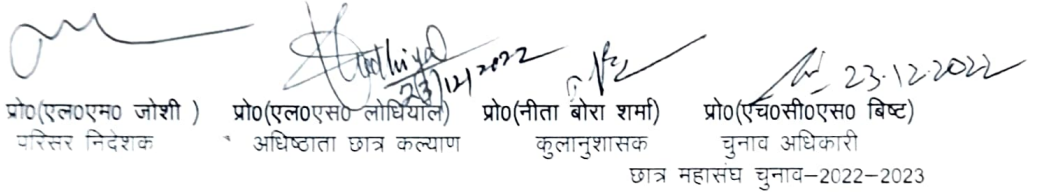 Lodhiyal
23/12/2022 23.12.2022
प्रो0(एल0एम0 जोशी ) प्रो0(एल0एस0 लोधियाल) प्रो0(नीता बोरा शर्मा) प्रो0(एच0सी0एस0 बिष्ट)
परिसर निदेशक अधिष्ठाता छात्र कल्याण कुलानुशासक चुनाव अधिकारी
छात्र महासंघ चुनाव–2022–2023